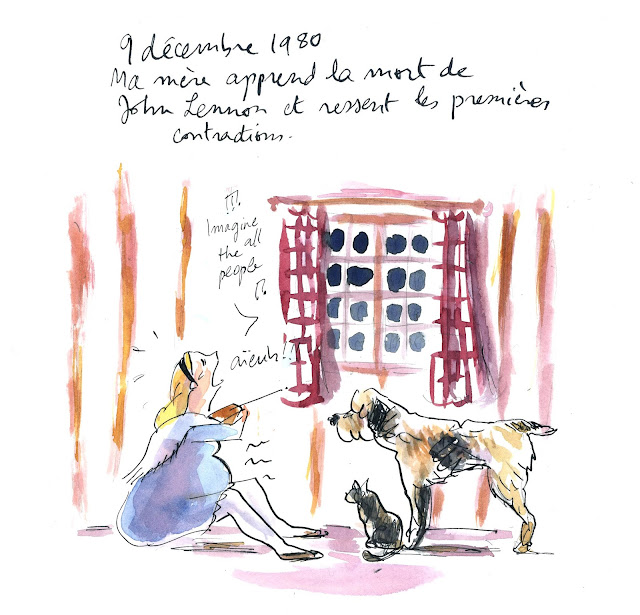 9 décembre 1980
Ma mère apprend la mort de
John Lennon et ressent les premières
contractions.
Imagine
the all
people
aïeuh!!